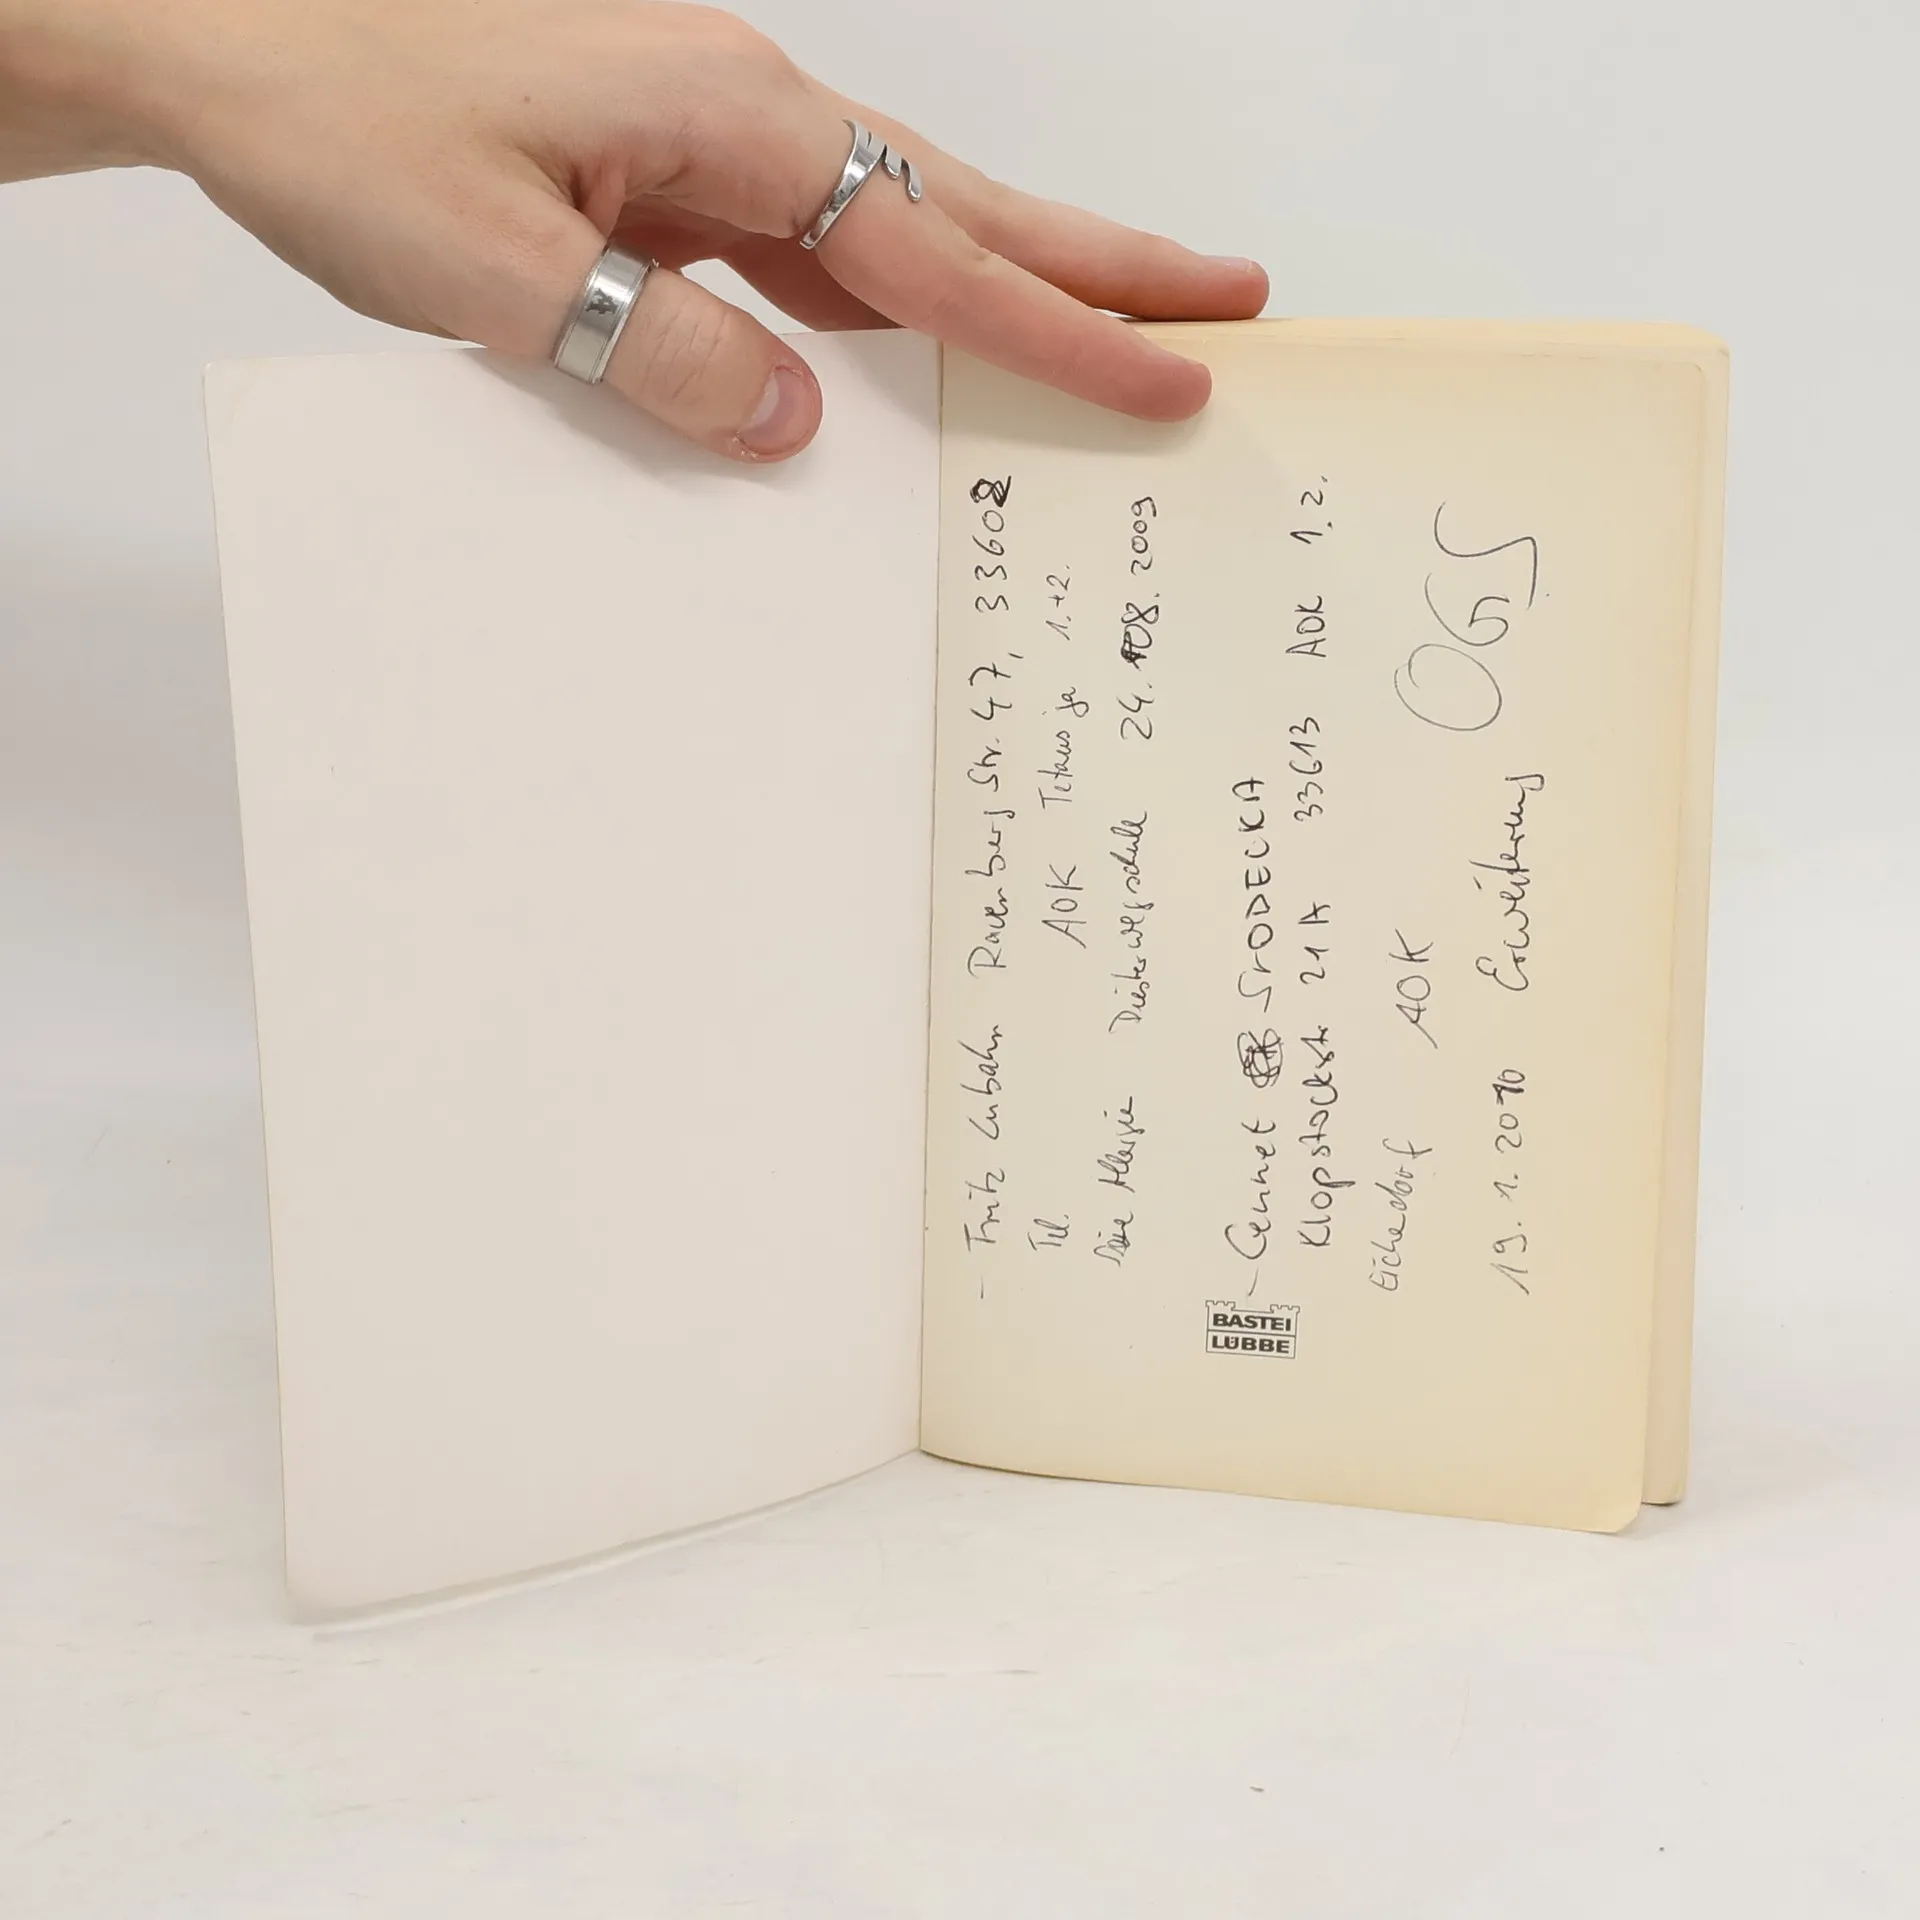 – Fritz Lubahn Ravenberg Str. 47, 33602
Tel. AOK Tetanus ja 1.+2.
Allergie Diesterwegschule 24.08.2009
– Cennet SRODECKA
Klopstockstr. 21A 33613 AOK 1,2.
Eichedorf AOK OGS
19.1.2010 Erweiterung
BASTEI
LÜBBE